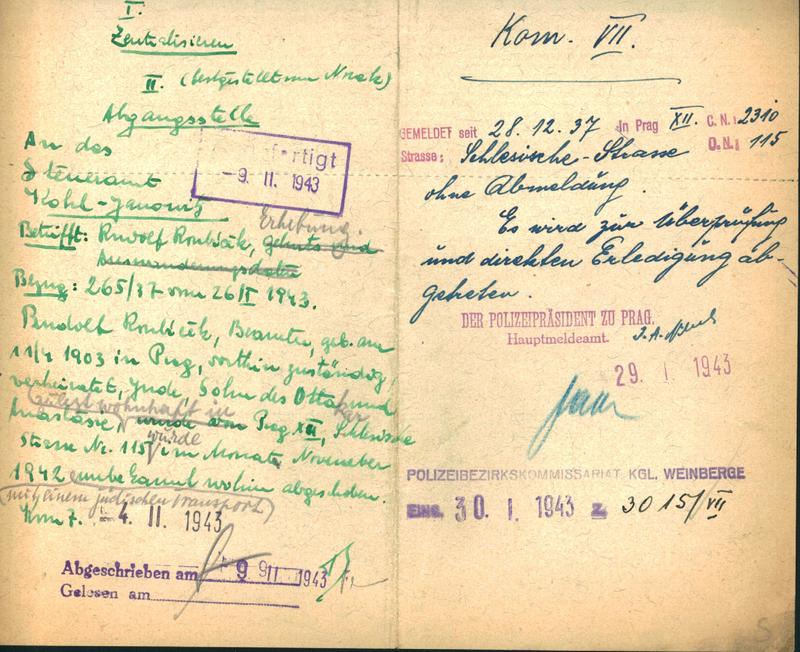 I.
Zentralisieren
II. (bestgestellt von Novak)
Abgangsstelle
An das
Steueramt
Kohl-Janowitz
fertigt
- 9. II. 1943
Erhebung.
Betrifft: Rudolf Roubíček, geburts und
Auswanderungsdaten
Bezug: 265/37 vom 26/I 1943.
Rudolf Roubíček, Beamter, geb. am
11/4 1903 in Prag, dorthin zuständig,
verheiratet, Jude, Sohn des Otta und
zuletzt wohnhaft in
Anastasie, wurde von Prag XII, Schlesische
wurde
Strasse Nr. 115, im Monate November
1942 unbekannt wohin abgeschoben.
(mit einem jüdischen Transport)
Kom 7. 4. II 1943
Abgeschrieben am 9 II. 1943
Gelesen am
Kom. VII.
GEMELDET seit 28.12.37 in Prag XII. C.N.: 2310
Strasse: Schlesische-Strasse O.N.: 115
ohne Abmeldung.
Es wird zur Überprüfung
und direkten Erledigung ab-
getreten.
DER POLIZEIPRÄSIDENT ZU PRAG.
Hauptmeldeamt. I.A.
29. I. 1943
POLIZEIBEZIRKSKOMMISSARIAT KGL. WEINBERGE
EING. 30. I. 1943 Z. 3015/VII
S